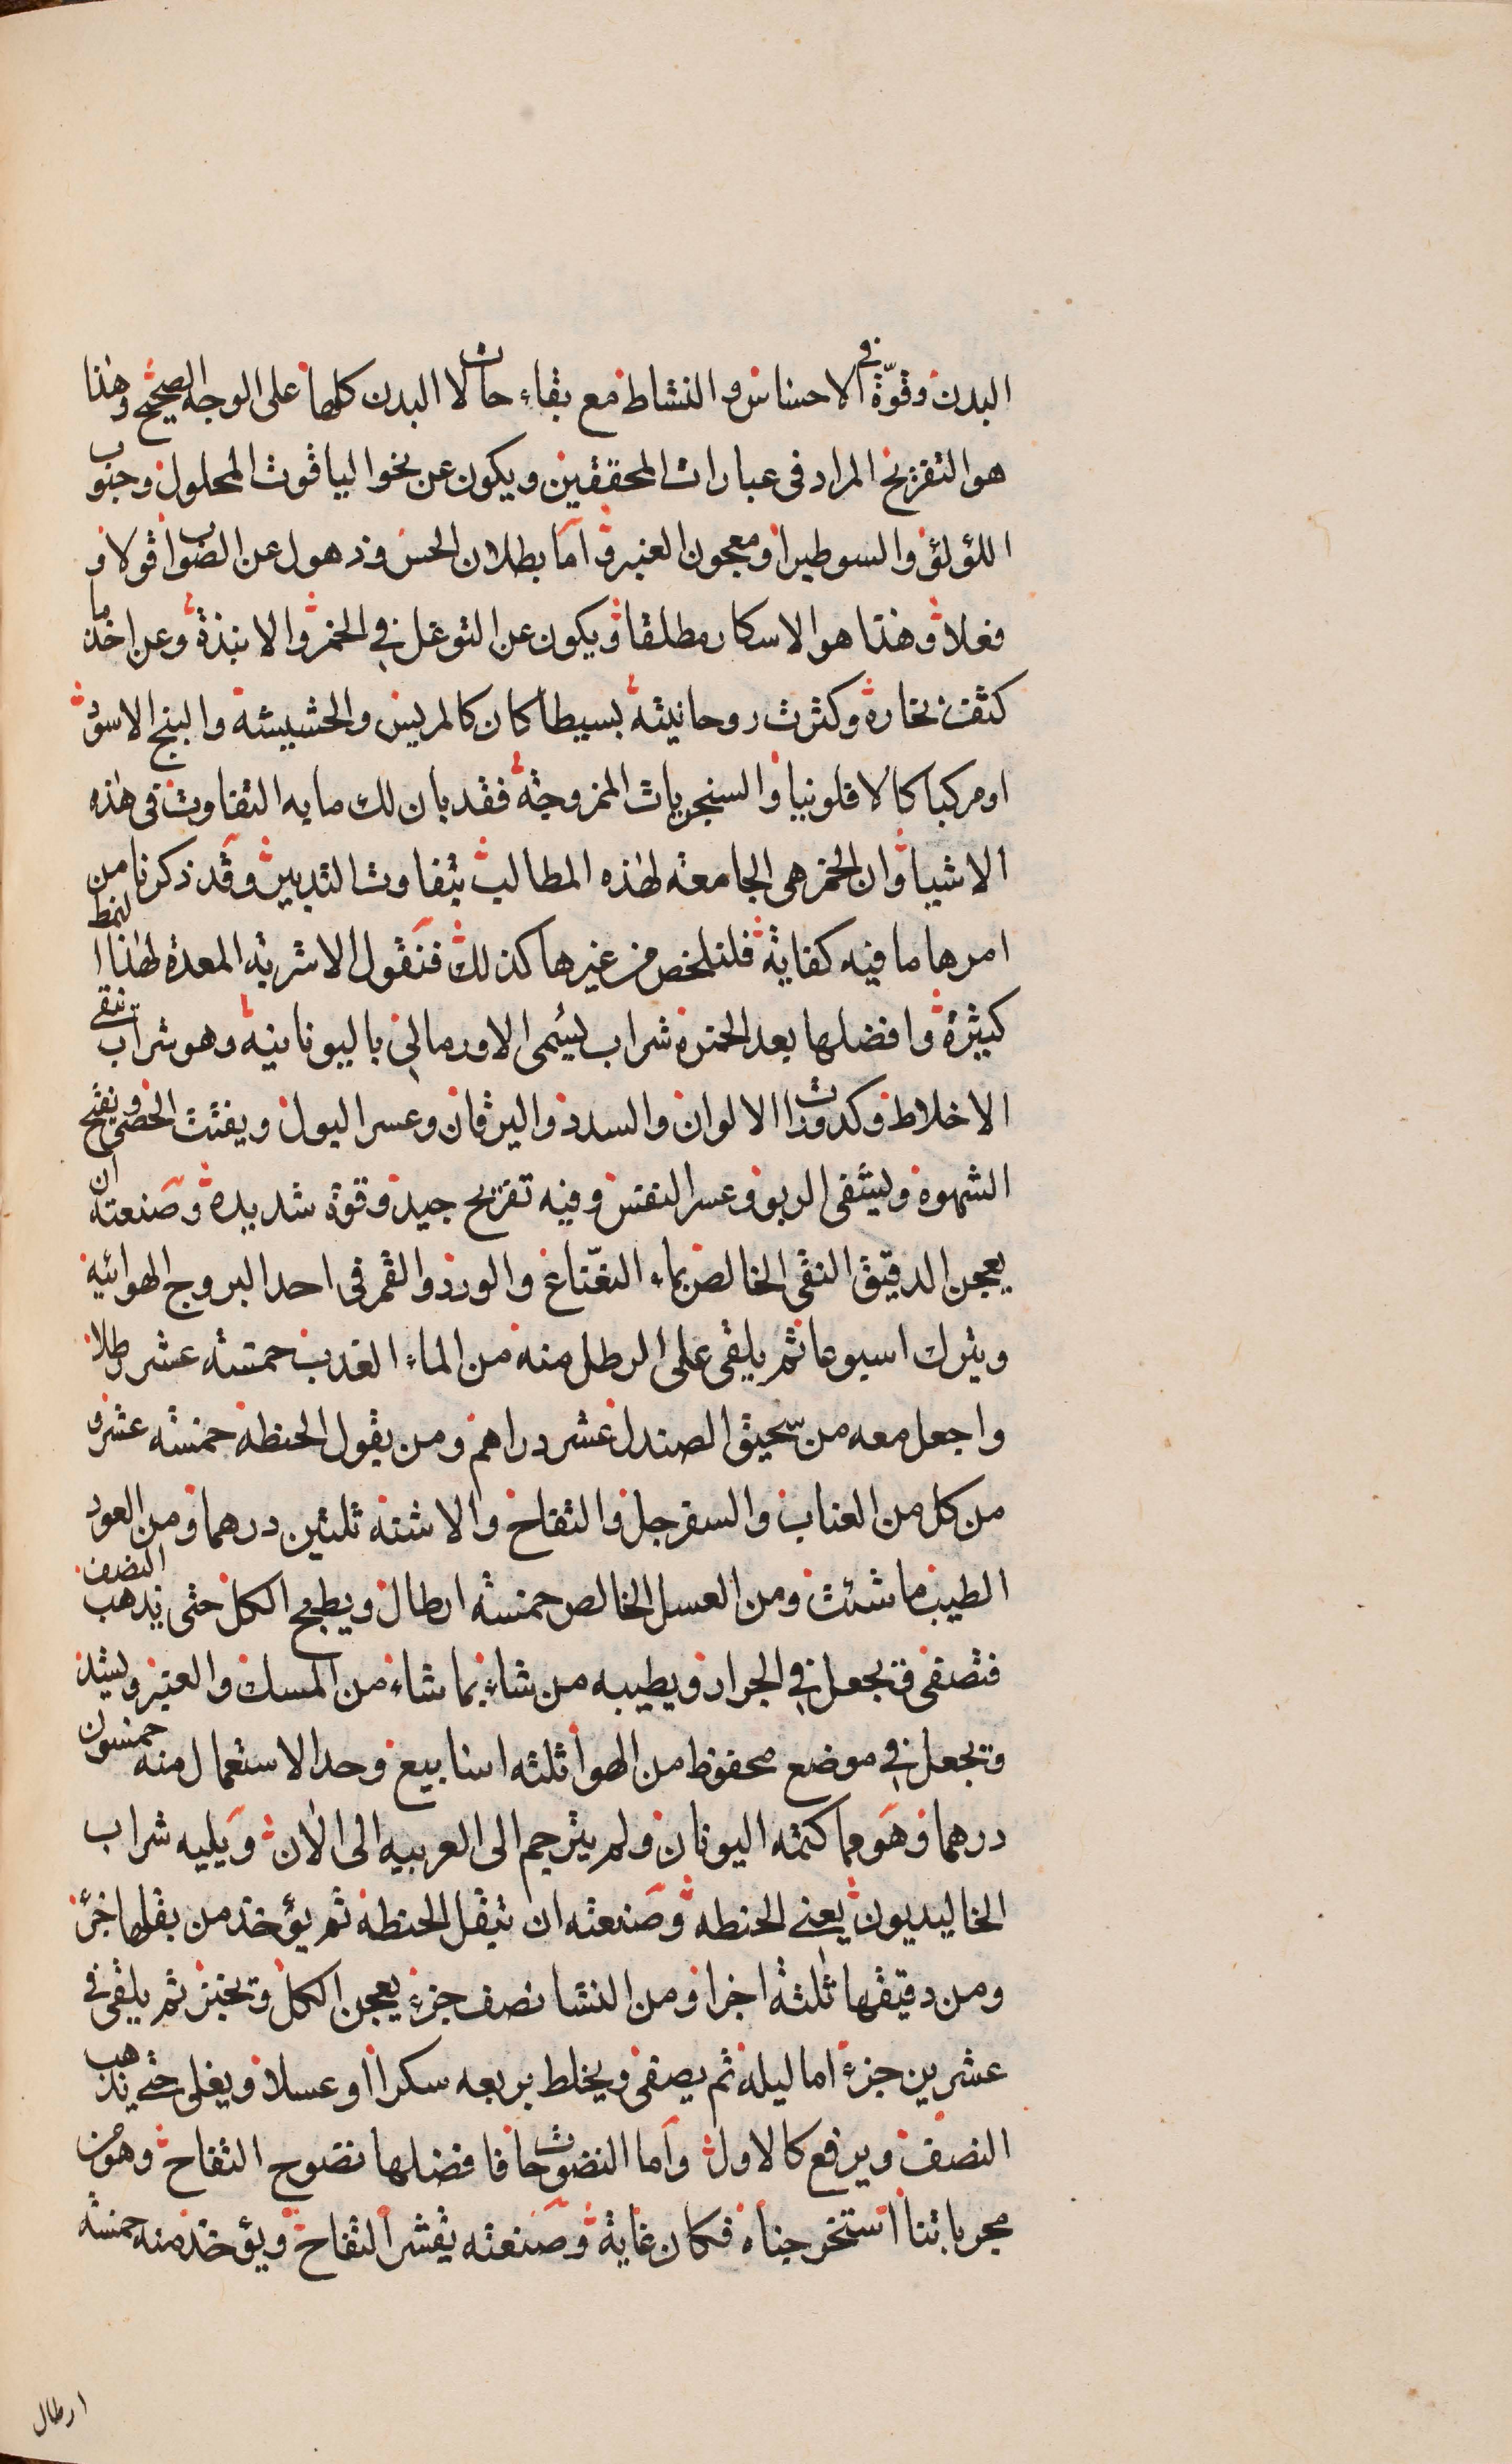 البدن وقوّة في الاحساس والنشاط مع بقاء حالات البدن كلها على الوجه الصحيح وهذا
هو التفريح المراد في عبارات المحققين ويكون عن نحو الياقوت المحلول وحبوب
اللؤلؤ والسوطيرا ومعجون العنبر واما بطلان الحس وذهول عن الصواب قولا و
فعلا وهذا هو الاسكار مطلقا ويكون عن التوغل في الخمر والانبذة وعن اخذ ما
كثف بخاره وكثرت روحانيته بسيطا كان كالمريس والحشيشه والبنج الاسود
او مركبا كالافلونيا والسنجريات الممزوجة فقد بان لك ما به التفاوت في هذه
الاشيا وان الخمر هي الجامعة لهذه المطالب بتفاوت التدبير وقد ذكرنا من
امرها ما فيه كفاية فلنلخص من غيرها كذلك فنقول الاشربة المعدة لهذا النمط
كثيرة وافضلها بعد الخمرة شراب يسمى الاورمالي باليونانيه وهو شراب ينقي
الاخلاط وكدورات الالوان والسدد واليرقان وعسر البول ويفتت الحصى ويفتح
الشهوة ويشفى الربو وعسر النفس وفيه تفريح جيد وقوة شديدة وصنعته ان
يعجن الدقيق النقى الخالص بماء النعناع والورد والقمر في احد البروج الهوائيه
ويترك اسبوعا ثم يلقى على الرطل منه من الماء العذب خمسة عشر رطلا
واجعل معه من سحيق الصندل عشر دراهم ومن بقول الحنطه خمسة عشر و
من كل من العناب والسفرجل والتفاح والاشنه ثلثين درهما ومن العود
الطيب ما شئت ومن العسل الخالص خمسة ارطال ويطبخ الكل حتى يذهب النصف
فتصفى وتجعل في الجرار ويطيبه من شاء بما شاء من المسك والعنبر ويشد
وتجعل في موضع محفوظ من الهوا ثلثه اسابيع وحد الاستعمال منه خمسون
درهما وهو مما كتمه اليونان ولم يترجم الى العربيه الى الان ويليه شراب
الخاليديون يعنى الحنطه وصنعته ان تبقل الحنطه ثم يؤخذ من بقلها جزؤ
ومن دقيقها ثلثة اجزا ومن النشا نصف جزء يعجن الكل وتخبز ثم يلقى في
عشرين جزء اما ليله ثم يصفى ويخلط بربعه سكرا او عسلا ويغلى حتى يذهب
النصف ويرفع كالاول واما النضوحات فافضلها نضوح التفاح وهو من
مجرباتنا استخرجناه فكان غاية وصنعته يقشر التفاح ويؤخذ منه خمسة
ارطال